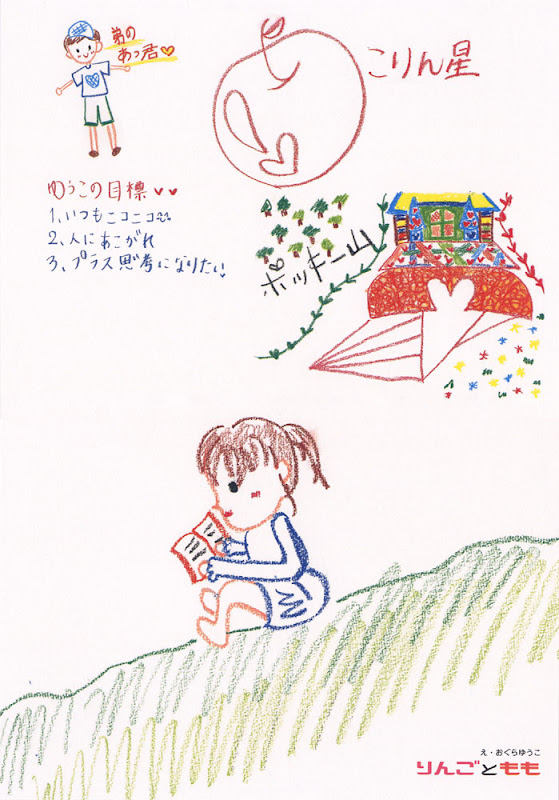 弟の
あっ君
こりん星
ゆうこの目標
1、いつもニコニコ
2、人にあこがれ
3、プラス思考になりたい
ポッキー山
え・おぐらゆうこ
りんごともも